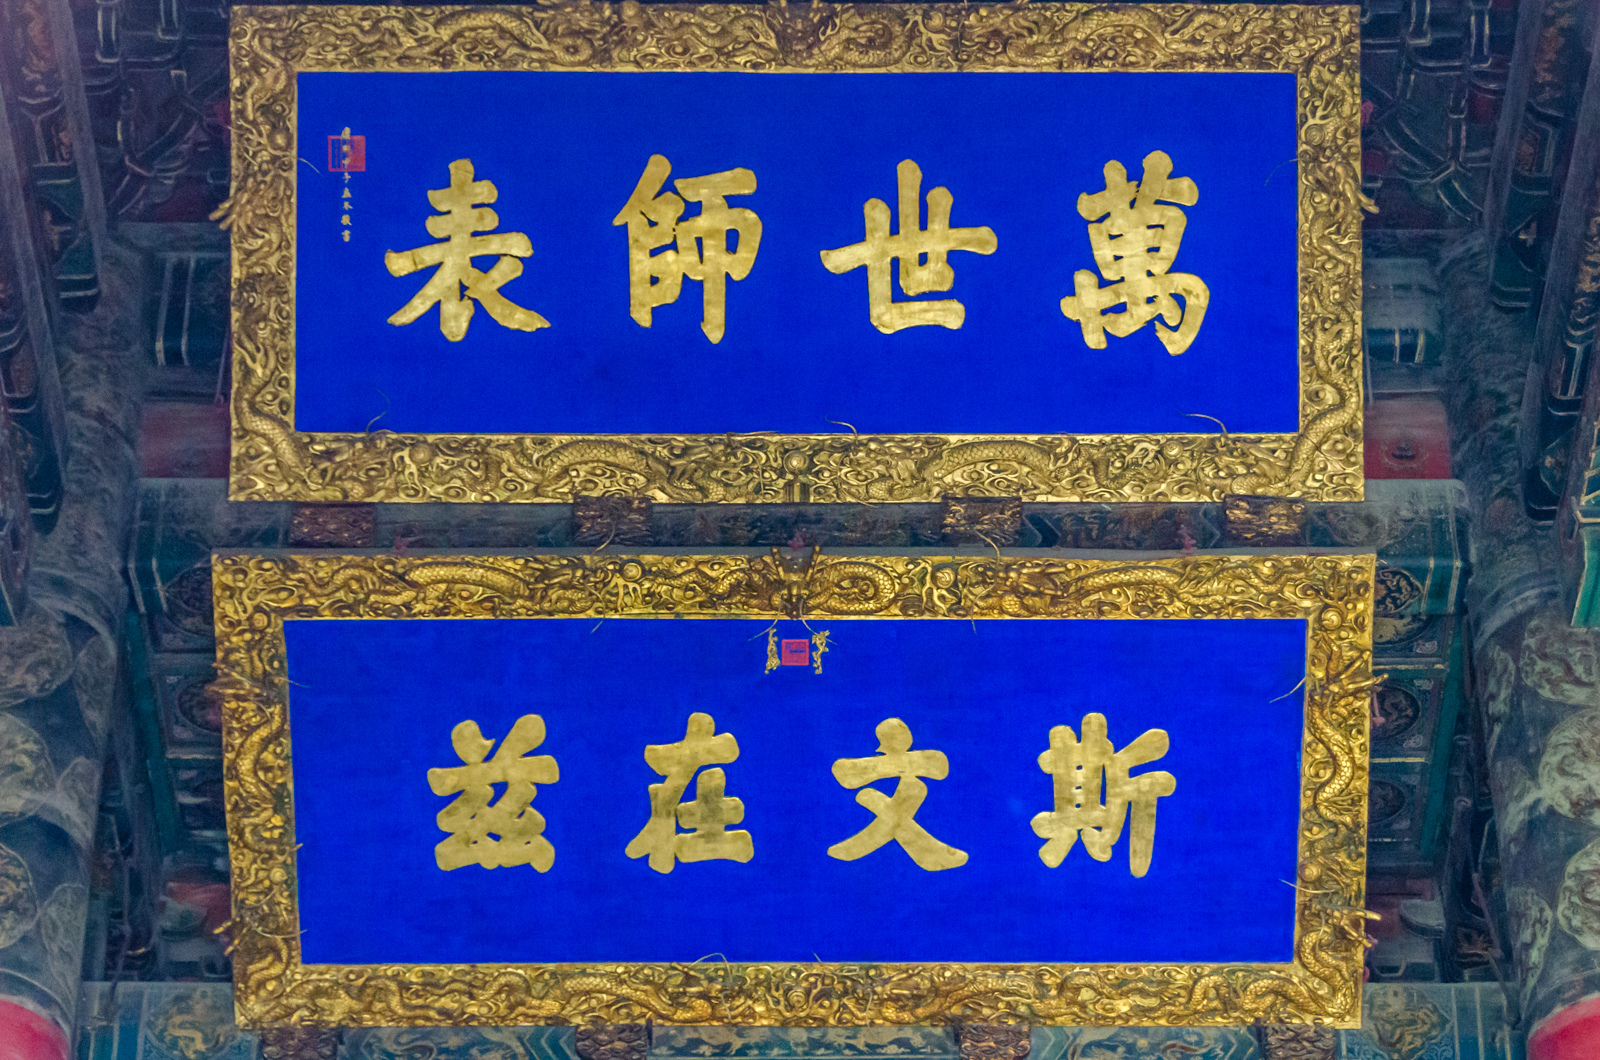 萬世師表
斯文在兹